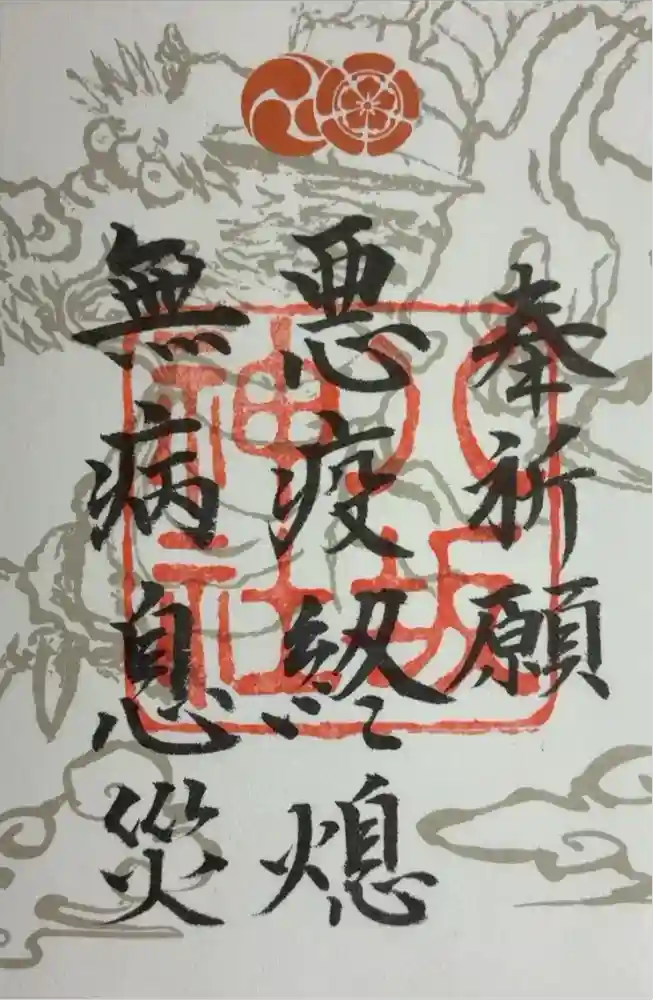 奉祈願
悪疫終熄
無病息災
八坂
神社